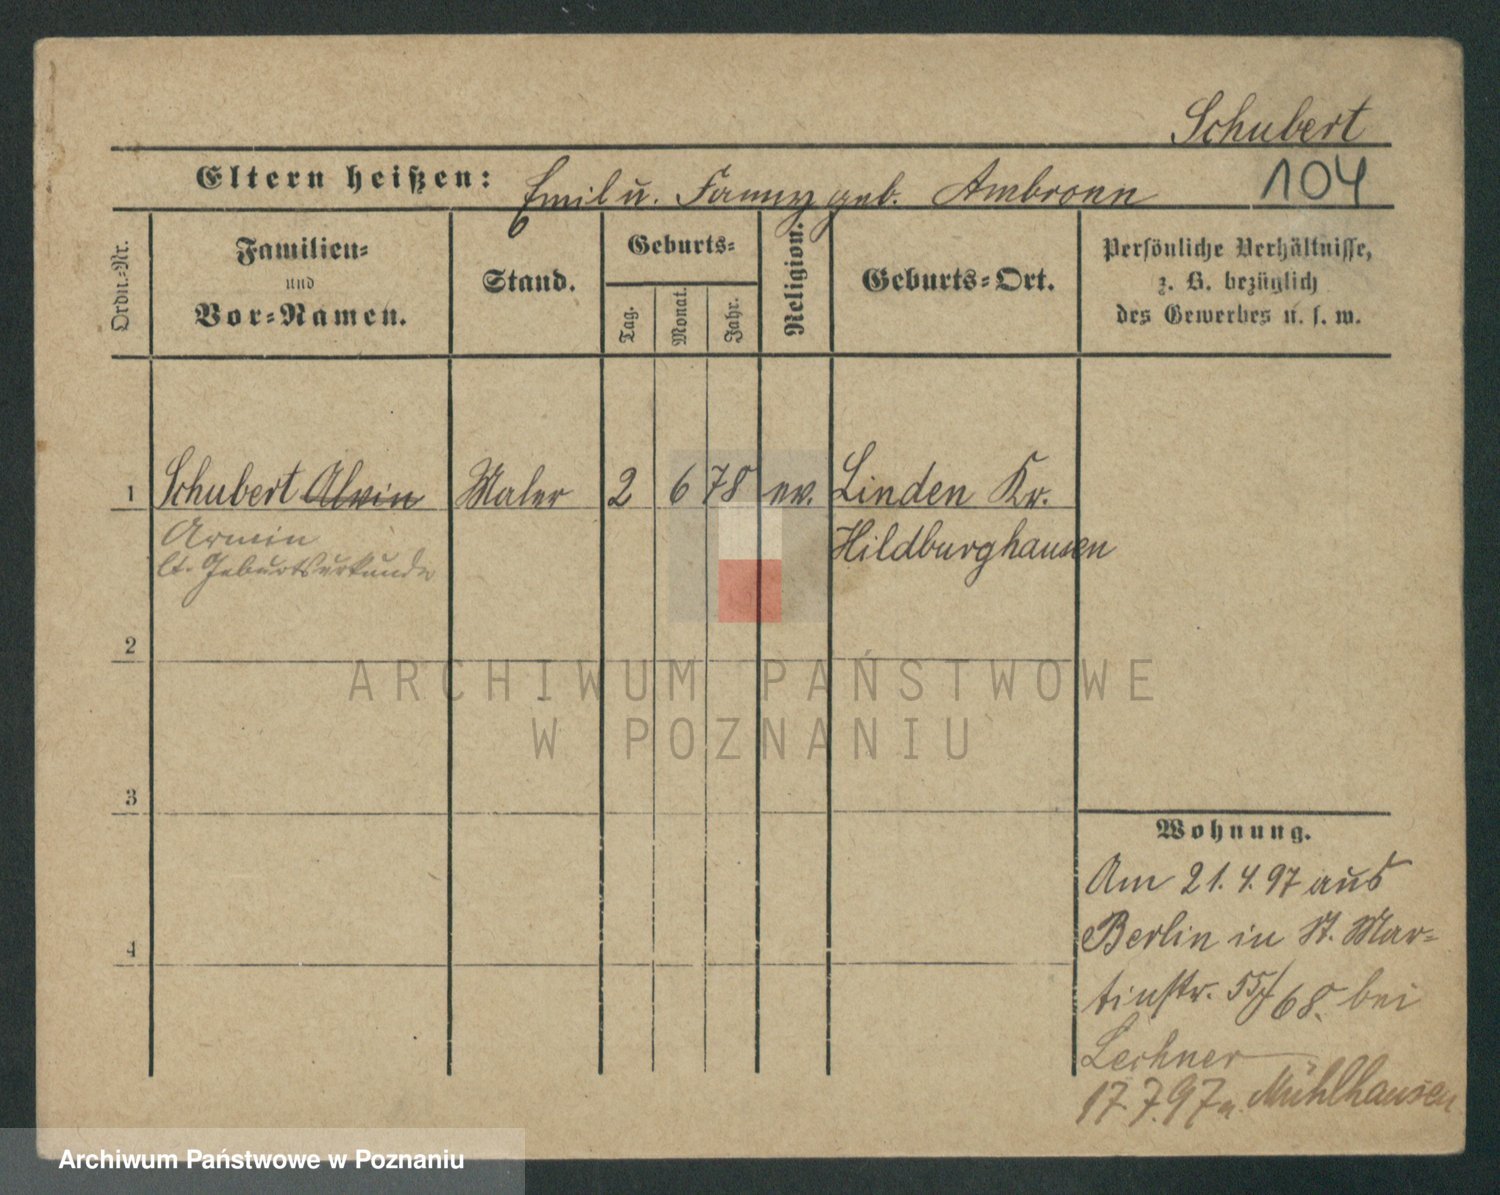 Schubert
Eltern heißen: Emil u. Fanny geb. Ambronn
104
Ordn.-Nr.
Familien-
und
Vor-Namen.
Stand.
Geburts-
Tag.
Monat.
Jahr.
Religion.
Geburts-Ort.
Persönliche Verhältnisse,
z. B. bezüglich
des Gewerbes u. s. w.
1 Schubert Alvin Maler 2 6 78 ev. Linden Kr.
Hildburghausen
Armin
lt. Geburtsurkunde
2
3
4
Wohnung.
Am 21.4.97 aus
Berlin in St. Mar-
tinstr. 55/68. bei
Lechner
17.7.97 n. Mühlhausen
ARCHIWUM PAŃSTWOWE
W POZNANIU
Archiwum Państwowe w Poznaniu